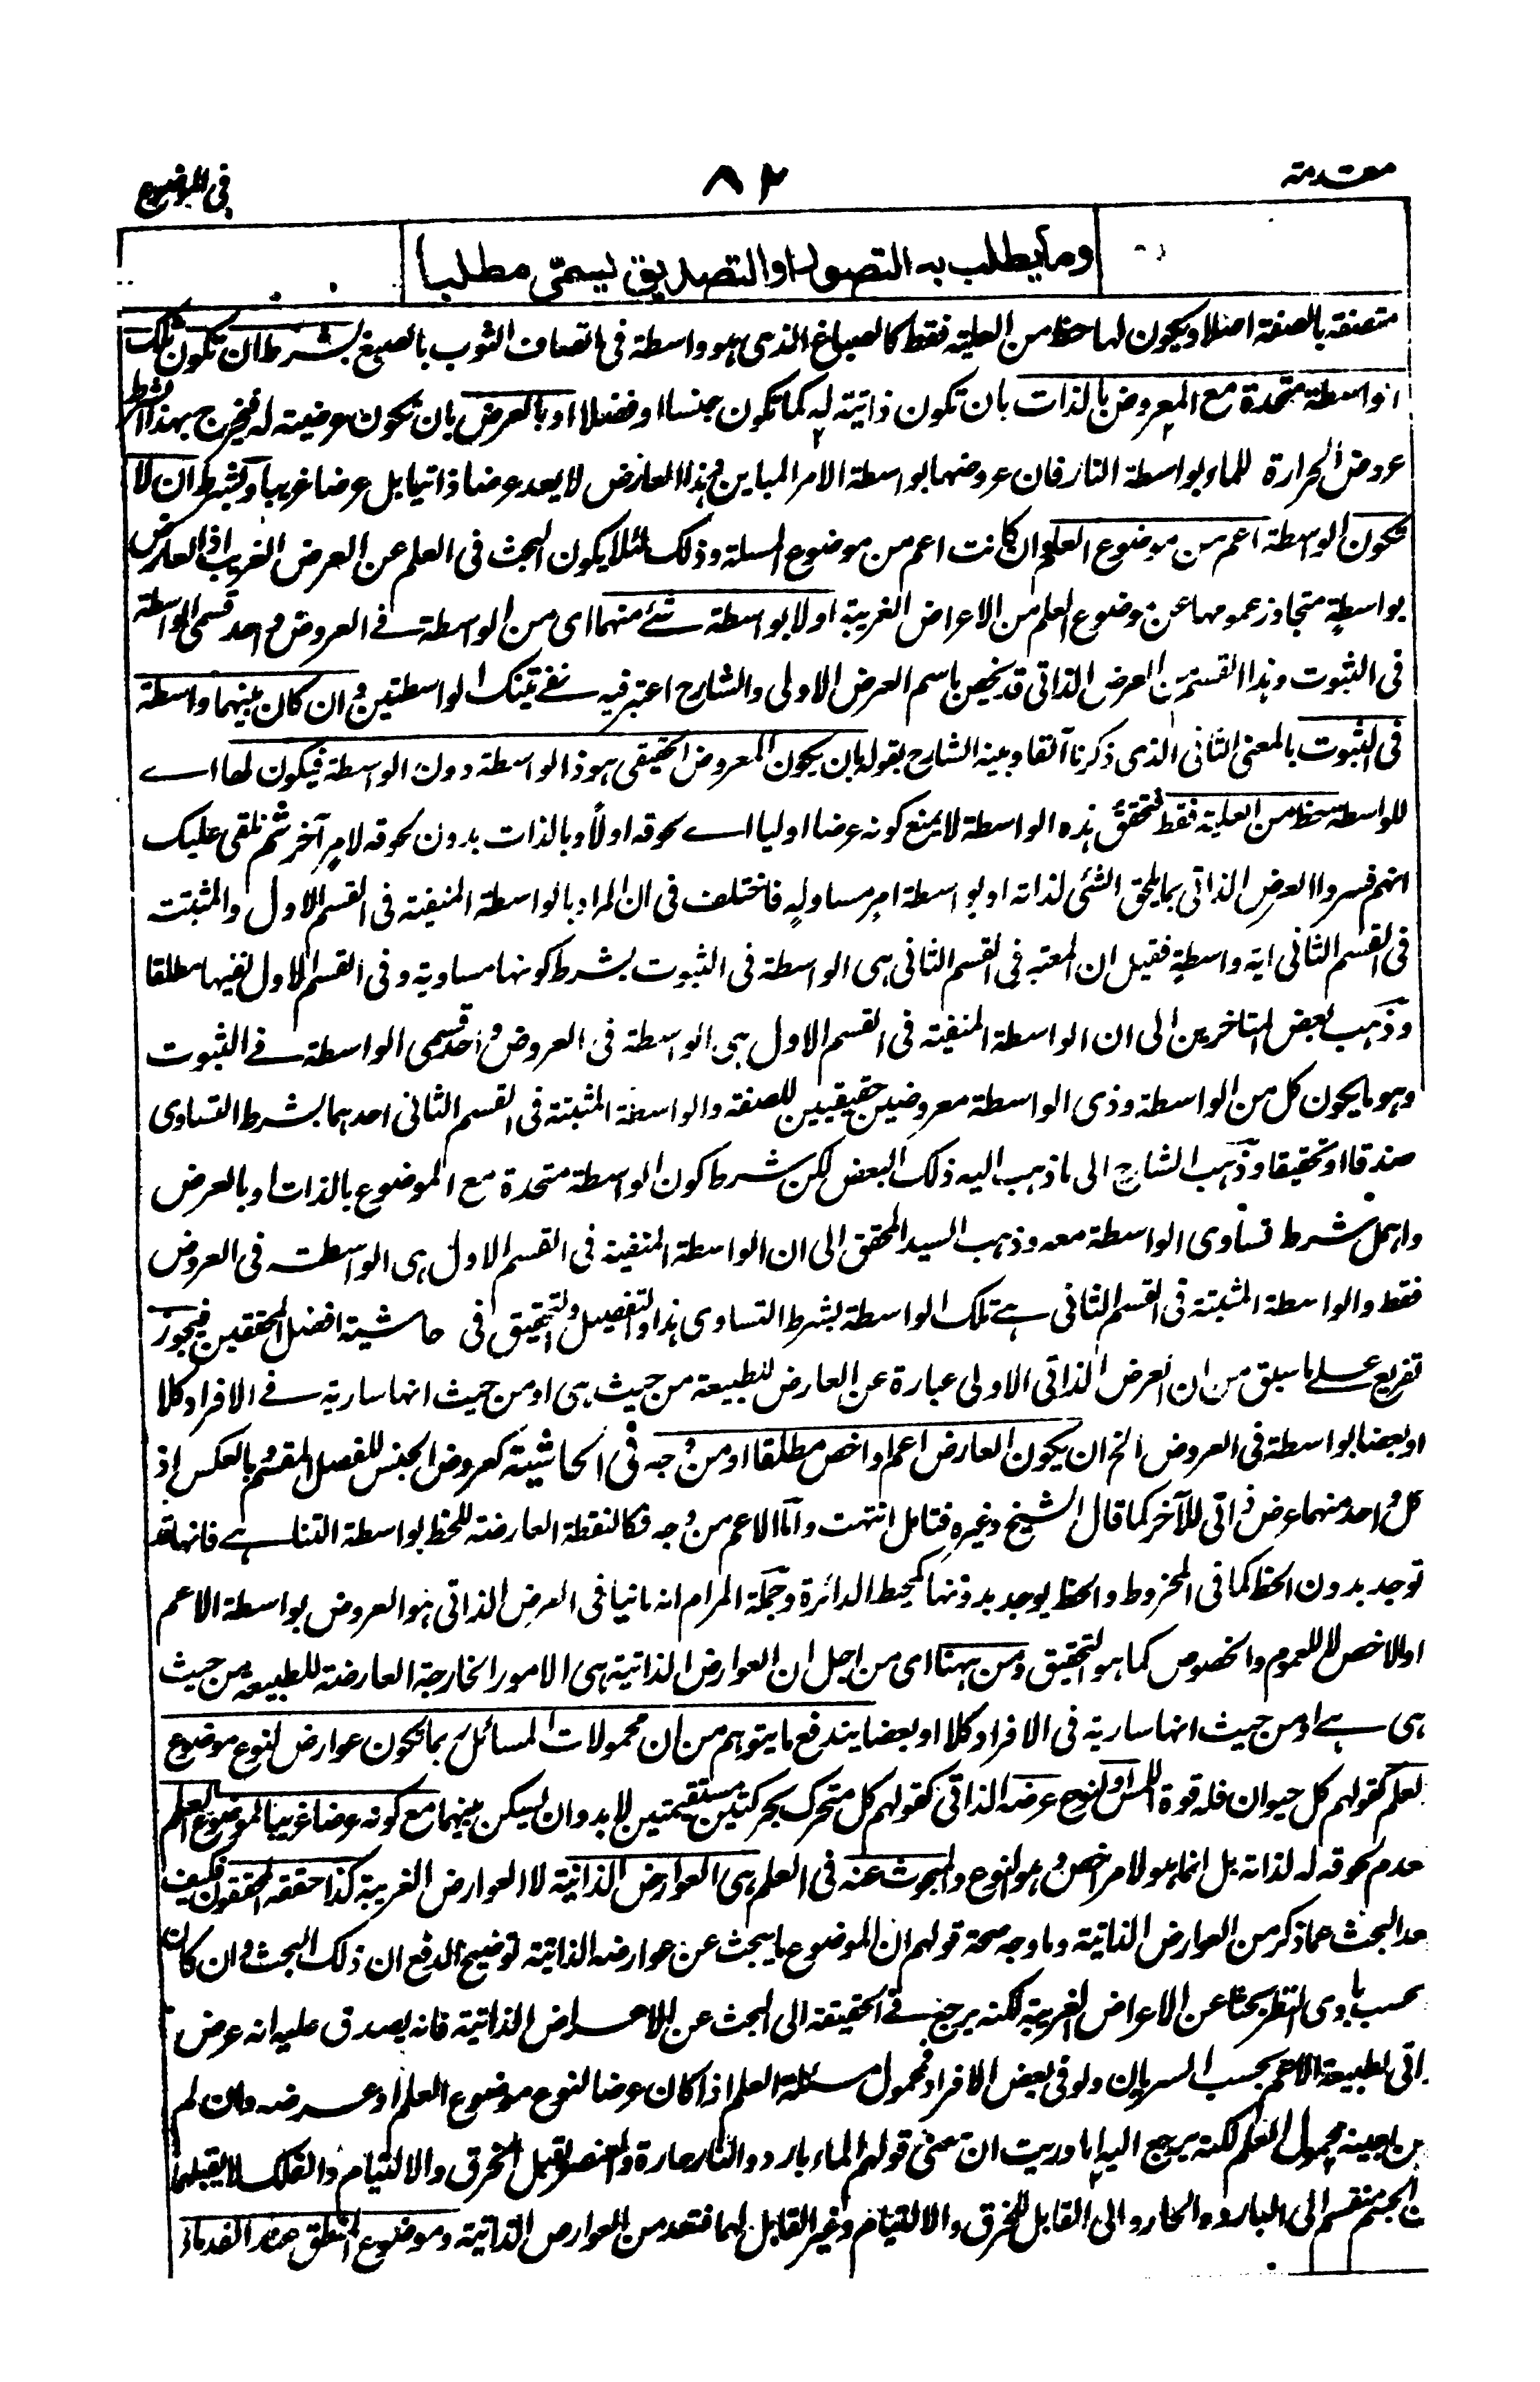 مقدمة
٨٢
فی الموضوع
وما یطلب به التصور او التصدیق یسمّی مطلبا
متصفة بالصفة اصلا ویکون لها حظ من العلیة فقط کالصباغ الذی هو واسطة فی اتصاف الثوب بالصبغ بشرط ان تکون تلک
الواسطة متحدة مع المعروض بالذات بان تکون ذاتیة له کما تکون جنسا او فصلا او بالعرض بان تکون عرضیة له فیخرج بهذا الشرط
عروض الحرارة للماء بواسطة النار فان عروضها بواسطة الامر المباین وهذا العارض لا یعد عرضا ذاتیا بل عرضا غریبا وبشرط ان لا
تکون الواسطة اعم من موضوع العلم وان کانت اعم من موضوع المسئلة وذلک لئلا یکون البحث فی العلم عن العرض الغریب اذ العارض
بواسطة متجاوز عمومها عن موضوع العلم من الاعراض الغریبة او لا بواسطة شئ منهما ای من الواسطة فی العروض واحد قسمی الواسطة
فی الثبوت وهذا القسم من العرض الذاتی قد یخص باسم العرض الاولی والشارح اعتبر فیه نفی تینک الواسطتین وان کان بینهما واسطة
فی الثبوت بالمعنی الثانی الذی ذکرنا آنفا وبینه الشارح بقوله بان یکون المعروض الحقیقی هو ذا الواسطة دون الواسطة فیکون لها ای
للواسطة حظ من العلیة فقط فتحقق هذه الواسطة لا یمنع کونه عرضا اولیا ای لحوقه اولاً وبالذات بدون لحوقه لامر آخر ثم نلقی علیک
انهم فسروا العرض الذاتی بما یلحق الشئ لذاته او بواسطة امر مساو له فاختلف فی ان المراد بالواسطة المنفیة فی القسم الاول والمثبتة
فی القسم الثانی ایة واسطة فقیل ان المعتبر فی القسم الثانی هی الواسطة فی الثبوت بشرط کونها مساویة وفی القسم الاول نفیها مطلقا
وذهب بعض المتاخرین الی ان الواسطة المنفیة فی القسم الاول هی الواسطة فی العروض واحد قسمی الواسطة فی الثبوت
وهو ما یکون کل من الواسطة وذی الواسطة معروضین حقیقیین للصفة والواسطة المثبتة فی القسم الثانی احدهما بشرط التساوی
صدقا او تحقیقا وذهب الشارح الی ما ذهب الیه ذلک البعض لکن شرط کون الواسطة متحدة مع الموضوع بالذات او بالعرض
واهمل شرط تساوی الواسطة معه وذهب السید المحقق الی ان الواسطة المنفیة فی القسم الاول هی الواسطة فی العروض
فقط والواسطة المثبتة فی القسم الثانی هی تلک الواسطة بشرط التساوی هذا والتفصیل والتحقیق فی حاشیة افضل المحققین فیجوز
تفریع علی ما سبق من ان العرض الذاتی الاولی عبارة عن العارض للطبیعة من حیث هی او من حیث انها ساریة فی الافراد کلا
او بعضا بواسطة فی العروض الخ ان یکون العارض اعم واخص مطلقا او من وجه فی الحاشیة کعروض الجنس للفصل المقسم وبالعکس اذ
کل واحد منهما عرض ذاتی للآخر کما قال الشیخ وغیره فتامل انتهت واما الاعم من وجه فکالنقطة العارضة للخط بواسطة التناهی فانها قد
توجد بدون الخط کما فی المخروط والخط یوجد بدونها کمحیط الدائرة وجملة المرام انه ما ینافی العرض الذاتی هو العروض بواسطة الاعم
او الاخص لا للعموم والخصوص کما هو التحقیق ومن ههنا ای من اجل ان العوارض الذاتیة هی الامور الخارجة العارضة للطبیعة من حیث
هی هی او من حیث انها ساریة فی الافراد کلا او بعضا یندفع ما یتوهم من ان محمولات المسائل ربما تکون عوارض لنوع موضوع
لعلم کقولهم کل حیوان فله قوة اللمس او لنوع عرضه الذاتی کقولهم کل متحرک بحرکتین مستقیمتین لا بد وان یسکن بینهما مع کونه عرضا غریبا لموضوع العلم
عدم لحوقه له لذاته بل انما هو لامر اخص وهو النوع والمبحوث عنه فی العلم هی العوارض الذاتیة لا العوارض الغریبة کذا حققه المحققون فکیف
عد البحث عما ذکر من العوارض الذاتیة وما وجه صحة قولهم ان الموضوع ما یبحث عن عوارضه الذاتیة توضیح الدفع ان ذلک البحث وان کان
بحسب بادی النظر بحثا عن الاعراض الغریبة لکنه یرجع فی الحقیقة الی البحث عن الاعراض الذاتیة فانه یصدق علیه انه عرض
اتی لطبیعة الاعم بحسب السریان ولو فی بعض الافراد فمحمول مسئلة العلم اذا کان عرضا لنوع موضوع العلم او عرضه وان لم
ن بعینه محمول العلم لکنه یرجع الیه اما دریت ان معنی قولهم الماء بارد والنار حارة والعنصر یقبل الخرق والالتیام والفلک لا یقبلهما
ن الجسم منقسم الی البارد والحار والی القابل للخرق والالتیام وغیر القابل لهما فتعد من العوارض الذاتیة وموضوع المنطق عند القدماء